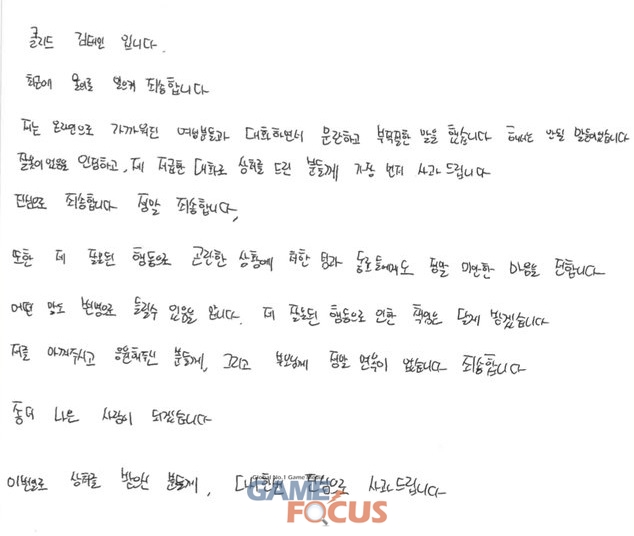 클리드 김태민 입니다.
최근에 물의를 일으켜 죄송합니다
저는 온라인으로 가까워진 여성분들과 대화하면서 문란하고 부적절한 말을 했습니다 해서는 안될 말들이었습니다
잘못이 있음을 인정하고, 제 저급한 대화로 상처를 드린 분들께 가장 먼저 사과드립니다
진심으로 죄송합니다 정말 죄송합니다,
또한 제 잘못된 행동으로 곤란한 상황에 처한 팀과 동료들에게도 정말 미안한 마음을 전합니다
어떤 말도 변명으로 들릴수 있음을 압니다. 제 잘못된 행동으로 인한 책임은 달게 받겠습니다
저를 아껴주시고 응원해주신 분들께, 그리고 부모님께 정말 면목이 없습니다 죄송합니다
좀더 나은 사람이 되겠습니다
이번으로 상처를 받았을 분들께, 다시한번 진심으로 사과드립니다
GAME FOCUS